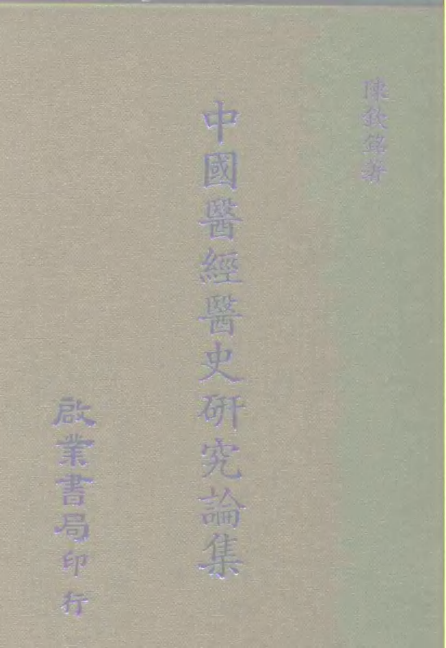 陳欽銘著
中國醫經醫史研究論集
啟業書局印行